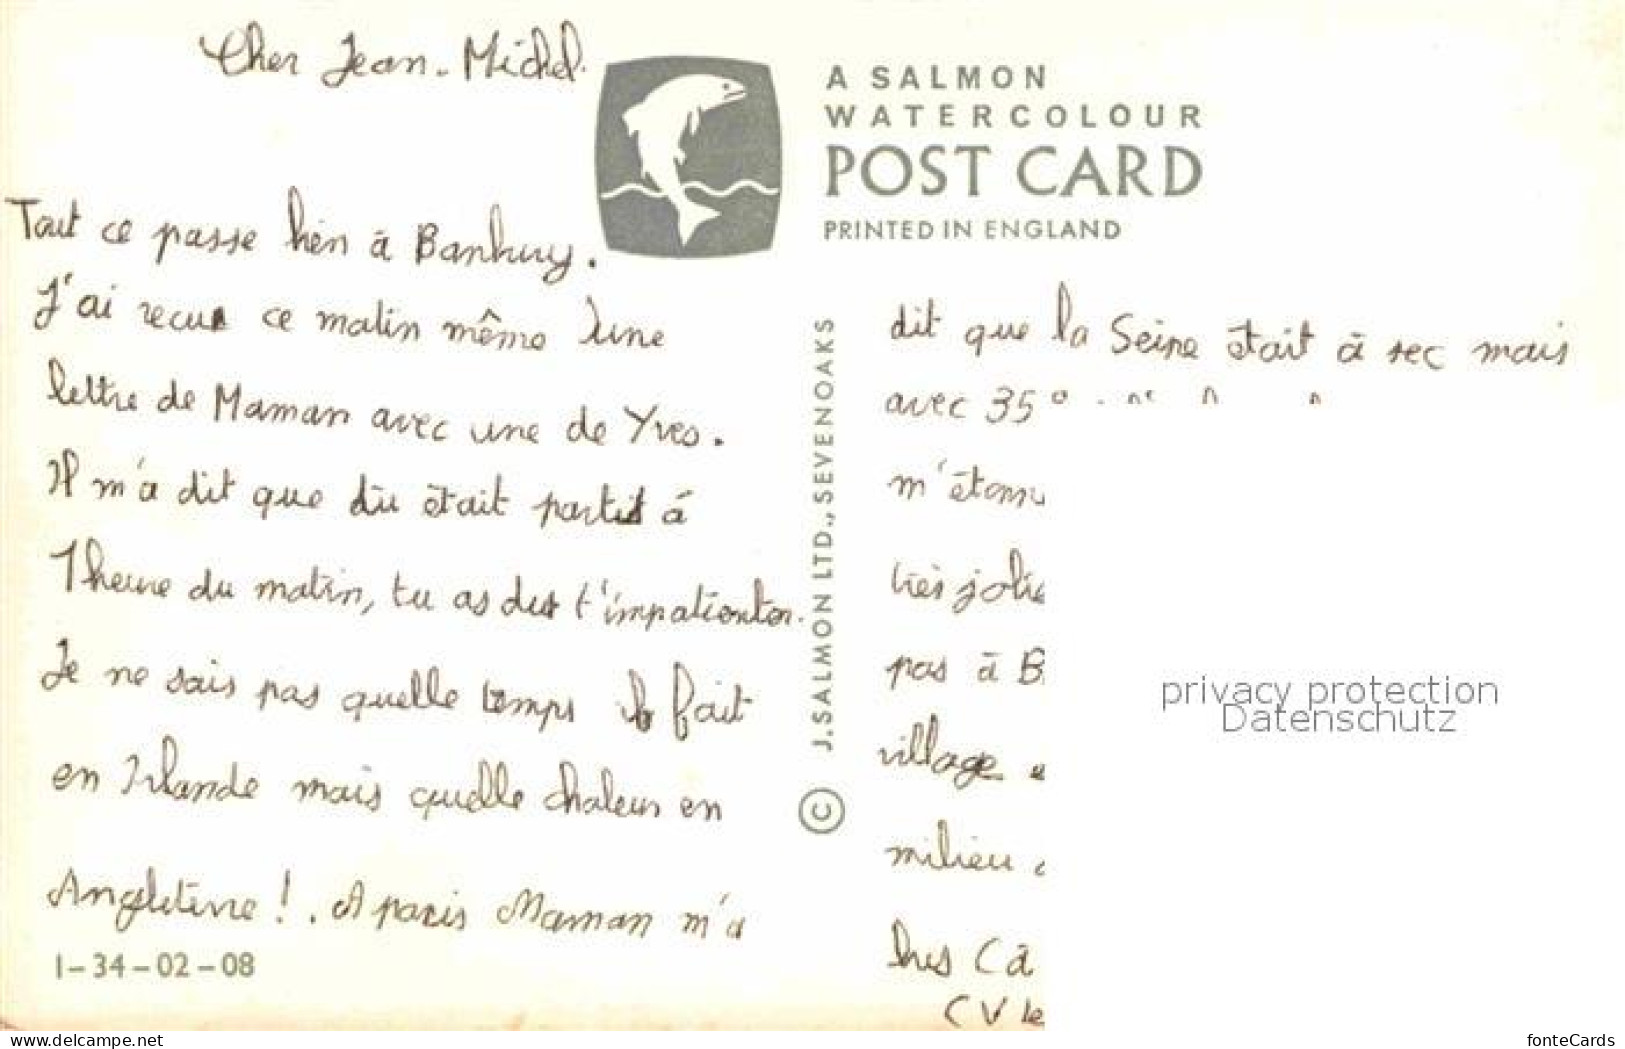 Cher Jean-Michel.
A SALMON
WATERCOLOUR
POST CARD
PRINTED IN ENGLAND
Tout ce passe bien à Banbury.
J'ai recue ce matin même une
lettre de Maman avec une de Yves.
Il m'a dit que tu était partit à
1 heure du matin, tu as dut t'impatienter.
Je ne sais pas quelle temps il fait
en Irlande mais quelle chaleur en
Angleterre ! . A paris Maman m'a
1-34-02-08
© J. SALMON LTD., SEVENOAKS
dit que la Seine était à sec mais
avec 35°
m'étonn
très jolie
pas à B
village e
milieu
bus Ca
CV le
privacy protection
Datenschutz
www.delcampe.net
fonteCards